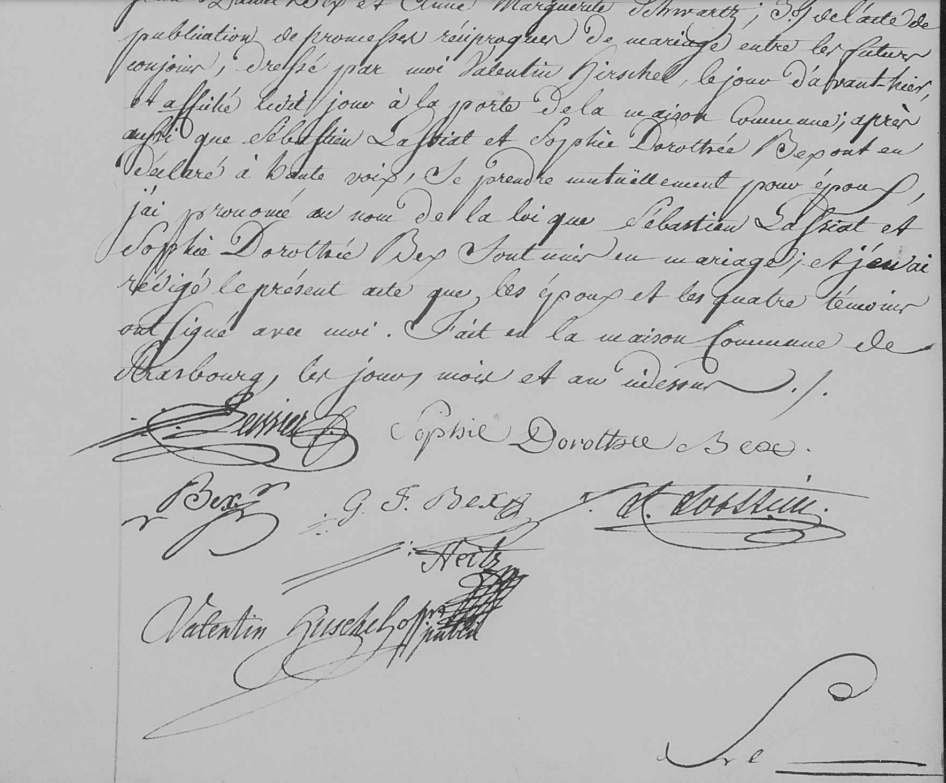 Jean Daniel Bex et Anne Marguerite Schwartz; 3.° de l'acte de
publication de promesses réciproques de mariage entre les futurs
conjoins, dressé par moi Valentin Hirschel, le jour d'avant-hier,
et affiché ledit jour à la porte de la maison Commune; après
aussi que Sébastien Lassiat et Sophie Dorothée Bex ont en
déclaré à haute voix, se prendre mutuëllement pour époux,
j'ai prononcé au nom de la loi que Sébastien Lassiat et
Sophie Dorothée Bex sont unis en mariage; et j'en ai
rédigé le présent acte que, les époux et les quatre témoins
ont signé avec moi. Fait en la maison Commune de
Strasbourg, les jour, mois et an udessus ./.
Sophie Dorothee Bex.
Bex
G. F. Bex
Heitz
Valentin Hirschel off. public
Le